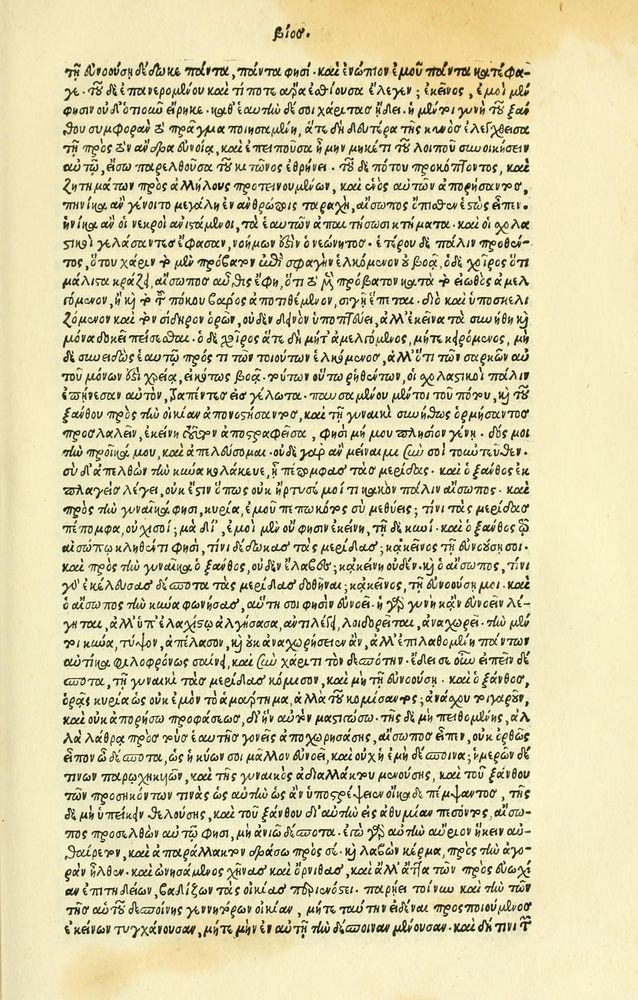 βίοσ.
τῇ εὐνοούσῃ δέδωκε πάντα, πάντα φησί. καὶ ἐνώπιον ἐμοῦ πάντα κατέφα
γε. τοῦ δὲ ἐπανερομένου καὶ τί ποτε ἄρα ἐσθίουσα ἔλεγεν; ἐκεῖνος, ἐμοὶ μὲν
φησιν οὐδ' ὁτιοῦν εἴρηκε. καθ' ἑαυτὴν δέ σοι χάριτας ᾔδει. ἡ μέντοι γυνὴ τοῦ ξαν
θου συμφορὰν τὸ πρᾶγμα ποιησαμένη, ἅτε δὴ δευτέρα τῆς κυνὸς ἐλεγχθεῖσα
τῇ πρὸς τὸν ἄνδρα εὐνοίᾳ, καὶ ἐπειποῦσα ἦ μὴν μηκέτι τοῦ λοιποῦ συνοικήσειν
αὐτῷ, εἴσω παρελθοῦσα τοῦ κοιτῶνος ἐθρήνει. τοῦ δὲ πότου προκόπτοντος, καὶ
ζητημάτων πρὸς ἀλλήλους προτεινομένων, καὶ ἑνὸς αὐτῶν ἀπορήσαντος,
πηνίκα ἂν γένοιτο μεγάλη ἐν ἀνθρώποις ταραχή, αἴσωπος ὄπισθεν ἑστὼς εἶπεν.
ἡνίκα ἂν οἱ νεκροὶ ἀνιστάμενοι, τὰ ἑαυτῶν ἀπαιτήσωσι κτήματα. καὶ οἱ σχολα
στικοὶ γελάσαντες ἔφασαν, νοήμων ἐστὶν ὁ νεώνητος. ἑτέρου δὲ πάλιν προθέν
τος, ὅτου χάριν τὸ μὲν πρόβατον ἐπὶ σφαγὴν ἑλκόμενον οὐ βοᾷ, ὁ δὲ χοῖρος ὅτι
μάλιστα κράζει, αἴσωπος αὖθις ἔφη, ὅτι τὸ μὲν πρόβατον κατὰ τὸ εἰωθὸς ἀμελ
γόμενον, ἢ καὶ τὸ τοῦ πόκου βάρος ἀποτιθέμενον, σιγῇ ἕπεται. διὸ καὶ ὑποσκελι
ζόμενον καὶ τὸν σίδηρον ὁρῶν, οὐδὲν δεινὸν ὑποπτεύει, ἀλλ' ἐκεῖνα τὰ συνήθη καὶ
μόνα δοκεῖ πείσεσθαι. ὁ δὲ χοῖρος ἅτε δὴ μήτ' ἀμελγόμενος, μήτε κειρόμενος, μὴ
δὲ συνειδὼς ἑαυτῷ πρός τι τῶν τοιούτων ἑλκόμενος, ἀλλ' ὅτι τῶν σαρκῶν αὐ
τοῦ μόνων ἐστὶ χρεία, εἰκότως βοᾷ. τούτων οὕτω ῥηθέντων, οἱ σχολαστικοὶ πάλιν
ἐπῄνεσαν αὐτὸν, τραπέντες εἰς γέλωτα. παυσαμένου μέντοι τοῦ πότου, καὶ τοῦ
ξάνθου πρὸς τὴν οἰκίαν ἀπονοστήσαντος, καὶ τῇ γυναικὶ συνήθως ὁρμήσαντος
προσλαλεῖν, ἐκείνη τοῦτον ἀποστραφεῖσα, φησὶ μή μου πλησίον γένῃ. δός μοι
τὴν προῖκά μου, καὶ ἀπελεύσομαι. οὐδὲ γὰρ ἂν μείναιμι σὺν σοὶ τοὐντεῦθεν.
σὺ δ' ἀπελθὼν τὴν κύνα κολάκευε, ᾗ πέπομφας τὰς μερίδας. καὶ ὁ ξάνθος ἐκ
πλαγεὶς λέγει, οὐκ ἔστιν ὅπως οὐκ ἤρτυσέ μοί τι κακὸν πάλιν αἴσωπος. καὶ
πρὸς τὴν γυναῖκα φησὶ, κυρία, ἐμοῦ πεπωκότος σὺ μεθύεις; τίνι τὰς μερίδας
πέπομφα, οὐχί σοι; μὰ δί', ἐμοὶ μὲν οὔ φησιν ἐκείνη, τῇ δὲ κυνί. καὶ ὁ ξάνθος τῷ
αἰσώπῳ κληθέντι φησὶ, τίνι δέδωκας τὰς μερίδας; κἀκεῖνος τῇ εὐνοούσῃ σοι.
καὶ πρὸς τὴν γυναῖκα ὁ ξάνθος, οὐδὲν ἔλαβες; κἀκείνη οὐδέν. καὶ ὁ αἴσωπος, τίνι
γὰρ ἐκέλευσας δέσποτα τὰς μερίδας δοθῆναι; κἀκεῖνος, τῇ εὐνοούσῃ μοι. καὶ
ὁ αἴσωπος τὴν κύνα φωνήσας, αὕτη σοι φησὶν εὐνοεῖ. ἡ γὰρ γυνὴ κἂν εὐνοεῖν λέ
γηται, ἀλλ' ὑπ' ἐλαχίστῳ ἀλγήσασα, ἀντιλέγει, λοιδορεῖται, ἀναχωρεῖ. τὴν μέν
τοι κύνα, τύψον, ἀπέλασον, καὶ οὐκ ἀναχωρήσειεν ἂν, ἀλλ' ἐπιλαθομένη πάντων
αὐτίκα φιλοφρόνως σαίνει, καὶ σὺν χάριτι τὸν δεσπότην. ἔδει σε οὖν εἰπεῖν δέ
σποτα, τῇ γυναικὶ τὰς μερίδας κόμισον, καὶ μὴ τῇ εὐνοούσῃ. καὶ ὁ ξάνθος,
ὁρᾷς κυρία ὡς οὐκ ἐμὸν τὸ ἁμάρτημα, ἀλλὰ τοῦ κομίσαντος; ἀνάσχου τοιγαροῦν,
καὶ οὐκ ἀπορήσω προφάσεως, δι' ἣν αὐτὸν μαστιγώσω. τῆς δὲ μὴ πειθομένης, ἀλ
λὰ λάθρᾳ πρὸς τοὺς ἑαυτῆς γονεῖς ἀποχωρησάσης, αἴσωπος εἶπεν, οὐκ ὀρθῶς
εἶπον ὦ δέσποτα, ὡς ἡ κύων σοι μᾶλλον εὐνοεῖ, καὶ οὐχ ἡ ἐμὴ δέσποινα; ἡμερῶν δέ
τινων παρῳχηκυιῶν, καὶ τῆς γυναικὸς ἀδιαλλάκτου μενούσης, καὶ τοῦ ξάνθου
τῶν προσηκόντων τινὰς ὡς αὐτὴν ὡς ἂν ὑποστρέψειεν οἴκαδε πέμψαντος, τῆς
δὲ μὴ ὑπείκειν θελούσης, καὶ τοῦ ξάνθου δι' αὐτὴν εἰς ἀθυμίαν πεσόντος, αἴσω
πος προσελθὼν αὐτῷ φησι, μὴ ἀνιῶ δέσποτα. ἐγὼ γὰρ αὐτὴν αὔριον ἥκειν αὐ
θαίρετον, καὶ ἀπαράλλακτον δράσω πρός σε. καὶ λαβὼν κέρμα, πρὸς τὴν ἀγο
ρὰν ἦλθεν. καὶ ὠνησάμενος χῆνας καὶ ὄρνιθας, καὶ ἄλλ' ἄττα τῶν πρὸς εὐωχί
αν ἐπιτηδείων, βαδίζων τὰς οἰκίας περιενόστει. παρῄει τοίνυν καὶ τὴν τῶν
τῆς αὑτοῦ δεσποίνης γεννητόρων οἰκίαν, μήτε ταύτην εἰδέναι προσποιούμενος
ἐκείνων τυγχάνουσαν, μήτε μὴν ἐν αὐτῇ τὴν δέσποιναν μένουσαν. καὶ δή τινι τῶν